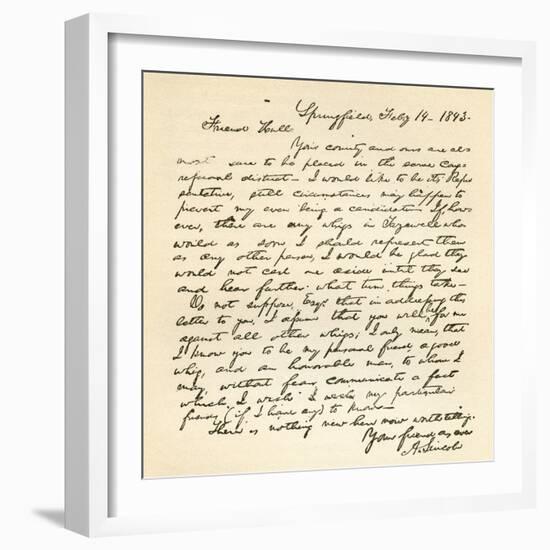 Springfield, Feby 14 - 1843.
Friend Hull
Your county and ours are al-
most sure to be placed in the same Cong
ressional district - I would like to be its Repre
sentative; still circumstances may happen to
prevent my even being a candidate - If, how-
ever, there are any whigs in Tazewell who
would as soon I should represent them
as any other person, I would be glad they
would not cast me aside until they see
and hear further what turn things take -
Do not suppose, Esqr. that in addressing this
letter to you, I assume that you will be for me
against all other whigs; I only mean, that
I know you to be my personal friend, a good
whig, and an honorable man, to whom I
may, without fear, communicate a fact
which I wish I wish my particular
friends (if I have any) to know -
There is nothing new here now worth telling.
Your friend as ever
A. Lincoln